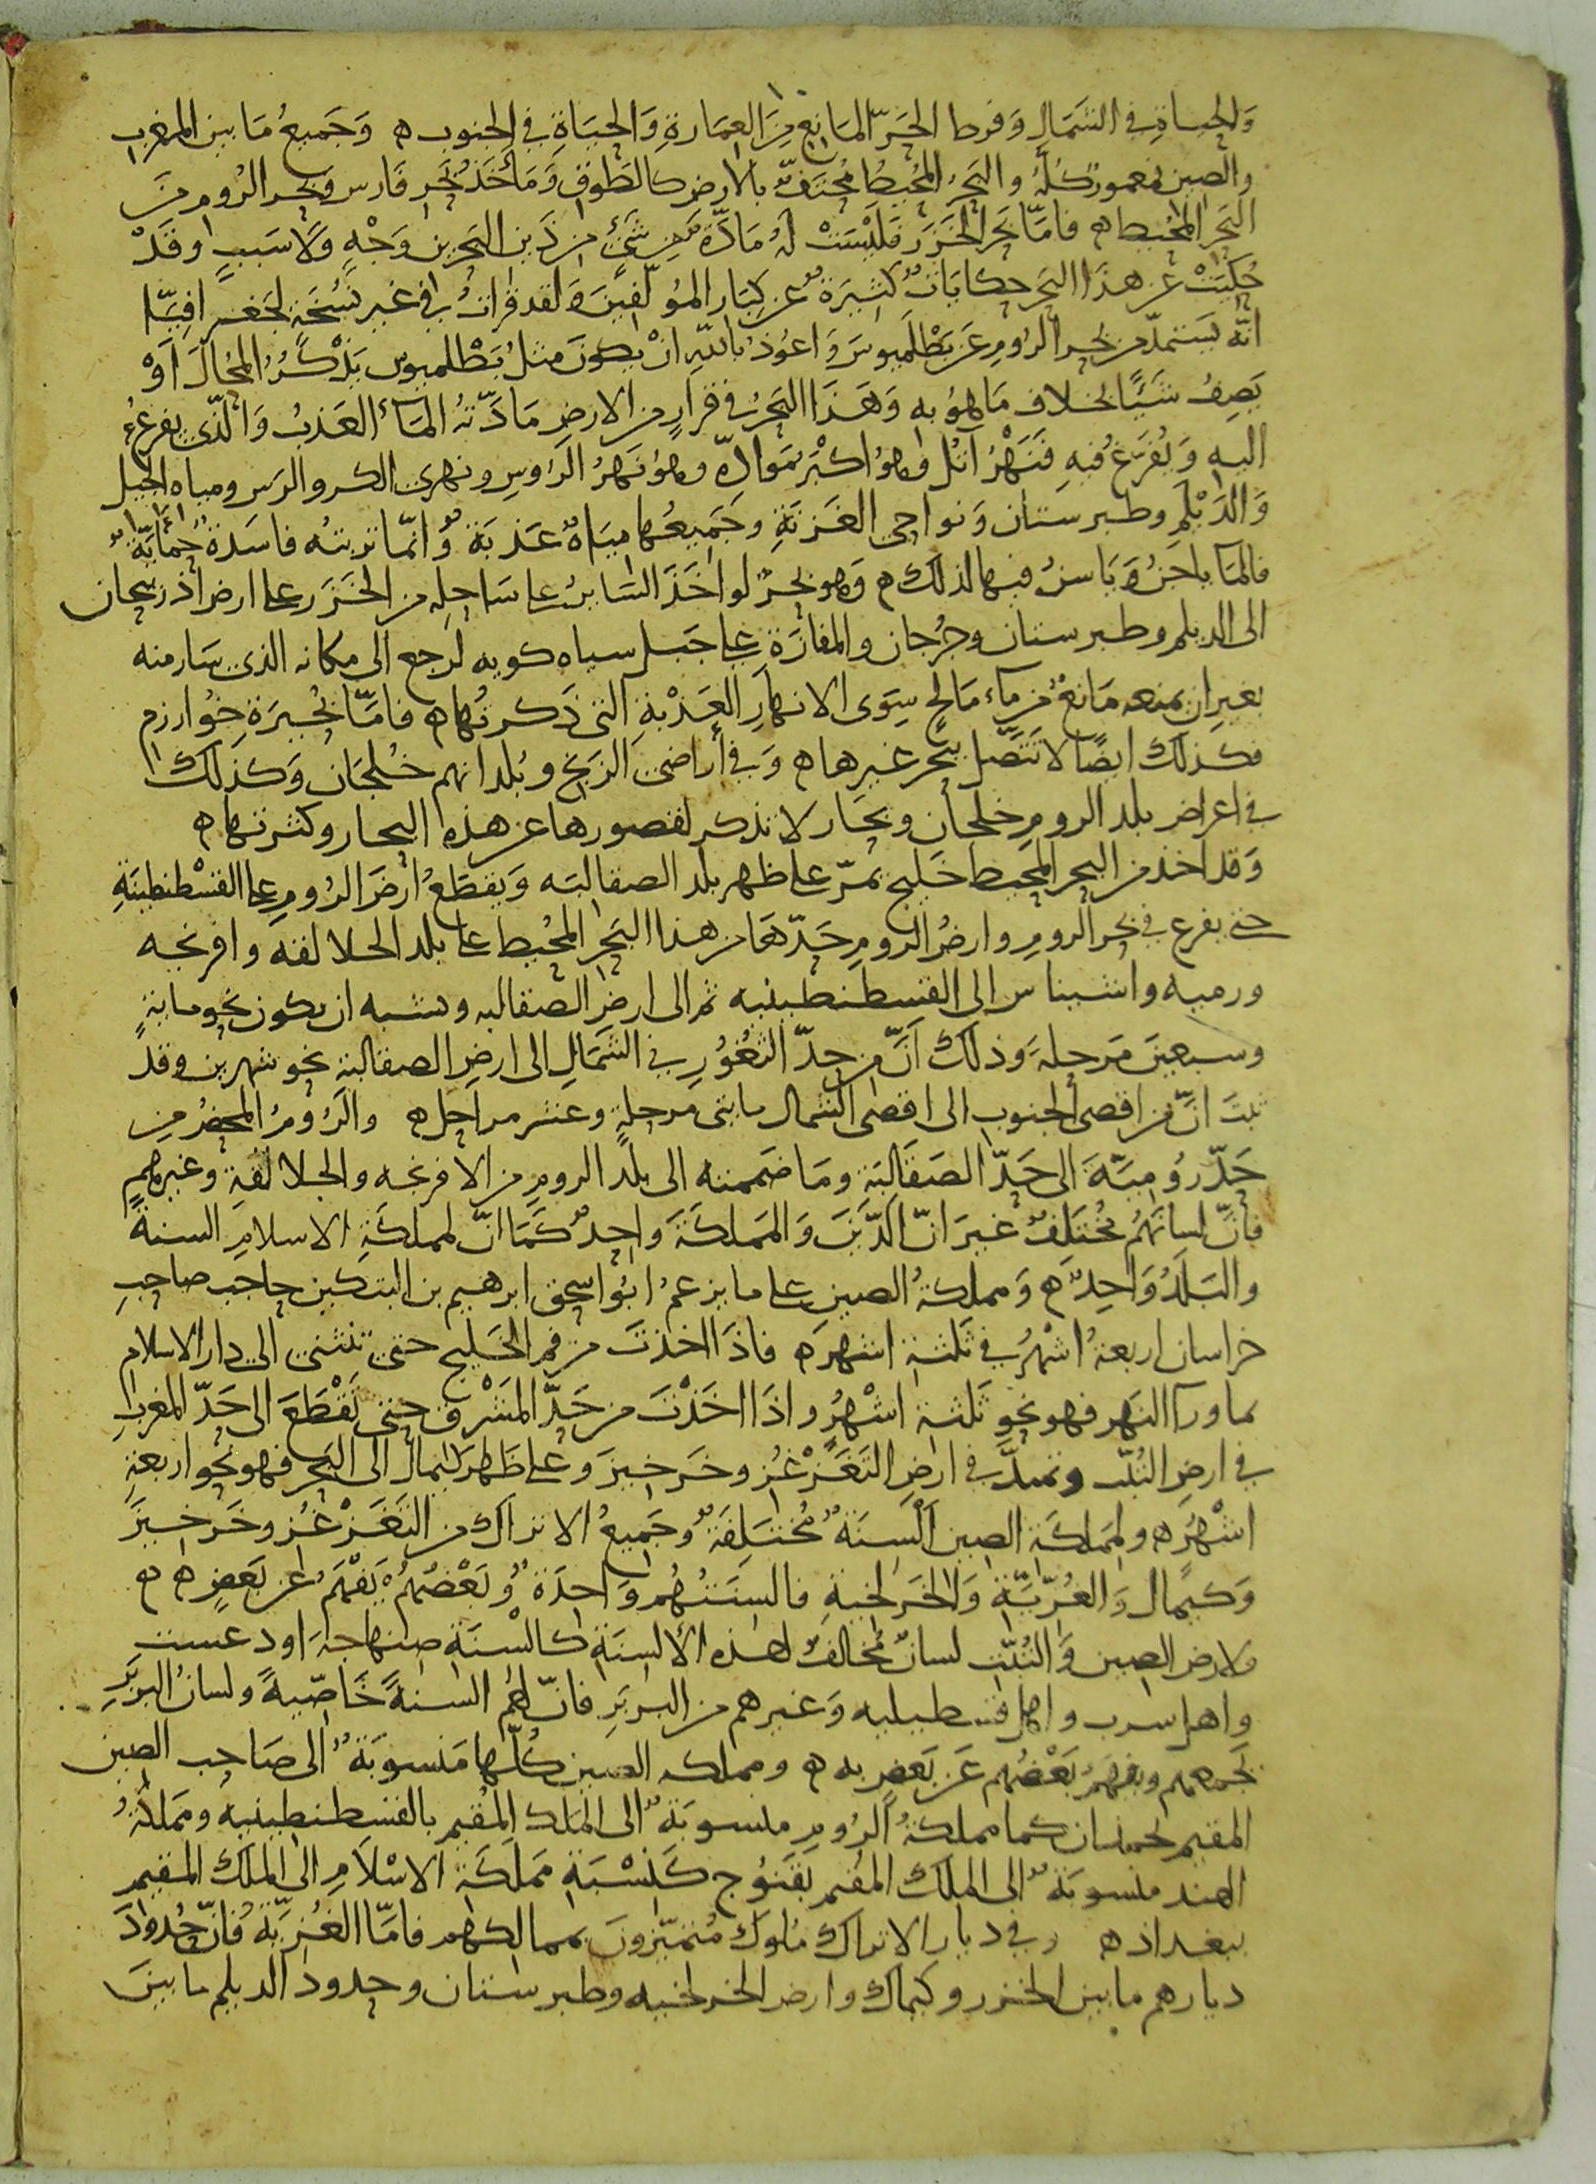 والحياة في الشمال وفرط الحرّ المانع من العمارة والحياة في الجنوب ه وجميع ما بين المغرب
والصين فمعمور كله والبحر المحيط محتفّ بالارض كالطوق ومأخذ بحر فارس وبحر الروم من
البحر المحيط ه فامّا بحر الخزر فليست له مادّة من شئ من ذين البحرين وجه ولا سبب وقد
حكيت عن هذا البحر حكايات كثيرة عن كبار المؤلفين ولقد قرات في غير نسخة لجغرافيا
انه يستمدّ من بحر الروم عن بطلميوس واعوذ بالله ان يكون مثل بطلميوس يذكر المحال او
يصف شيئًا بخلاف ما هو به وهذا البحر في قرار من الارض مادّته الماء العذب والذي يفرع
اليه ويفرغ فيه فنهر آتل وهو اكبر موادّه وهو نهر الروس ونهرى الكر والرس ومياه الجبل
والديلم وطبرستان ونواحى الغزية وجميعها مياه عذبة وانمّا تربته فاسدة حمائيّة
فالماء ياجن وياسن فيها لذلك ه وهو بحر لو اخذ السائر على ساحله من الخزر على ارض اذربيجان
الى الديلم وطبرستان وجرجان والمفازة على جبل سياه كويه لرجع الى مكانه الذي سار منه
بغير ان يمنعه مانع من ماء مالح سوى الانهار العذبة التى ذكرتها ه فامّا بحيرة خوارزم
فكذلك ايضًا لا تتصّل ببحر غيرها ه وفي اراضى الزنج وبلدانهم خلجان وكذلك
في اعراض بلد الروم خلجان وبحار لا تذكر لقصورها عن هذه البحار وكثرتها ه
وقد اخذ من البحر المحيط خليج يمرّ على ظهر بلد الصقالبه ويقطع ارض الروم على القسطنطينية
حتى يفرع في بحر الروم وارض الروم حدّها من هذا البحر المحيط على بلد الجلالقه وافرنجه
ورميه واشيناس الى القسطنطينيه ثم الى ارض الصقالبه ويشبه ان يكون نحو مائة
وسبعين مرحلة وذلك انّ من حدّ الثغور في الشمال الى ارض الصقالبة نحو شهرين وقد
ثبت انّ من اقصى الجنوب الى اقصى الشمال مايتى مرحلة وعشر مراحل ه والروم المحض من
حدّ رومية الى حدّ الصقالبة وما ضممته الى بلد الروم من الافرنجه والجلالقة وغيرهم
فانّ لسانهم مختلف غير انّ الدين والمملكة واحد كما انّ لمملكة الاسلام السنة
والبلد واحد ه ومملكة الصين على ما يزعم ابو اسحق ابرهيم بن البتكين حاجب صاحب
خراسان اربعة اشهر في ثلثة اشهر ه فاذا اخذت من فم الخليج حتى تنتهى الى دار الاسلام
بما ورآ النهر فهو نحو ثلثة اشهر واذا اخذت من حدّ المشرق حتى تقطع الى حدّ المغرب
في ارض التبّت وتمتدّ في ارض التغزغز وخرخيز وعلى ظهر كيماك الى البحر فهو نحو اربعة
اشهر ه ولمملكة الصين السنة مختلفة وجميع الاتراك من التغزغز وخرخيز
وكيماك والغزّيّة والخرلخية فالسنتهم واحدة وبعضهم يفهم عن بعض ه ه
ولارض الصين والتبّت لسان مخالف لهذه الالسنة كالسنة صنهاجة اودغست
واهل سرت واهل قسطيليه وغيرهم من البربر فانّ لهم السنة خاصّية ولسان البربر
يجمعهم ويفهم بعضهم عن بعض به ه ومملكه الصين كلّها منسوبة الى صاحب الصين
المقيم بحمدان كما مملكة الروم منسوبة الى الملك المقيم بالقسطنطينيه ومملكة
الهند منسوبة الى الملك المقيم بقنوج كنسبة مملكة الاسلام الى الملك المقيم
ببغداذ ه وفي ديار الاتراك ملوك متميّزون بممالكهم فامّا الغزيّة فانّ حدود
ديارهم ما بين الخزر وكيماك وارض الخرلخيه وطبرستان وحدود الديلم ما بين